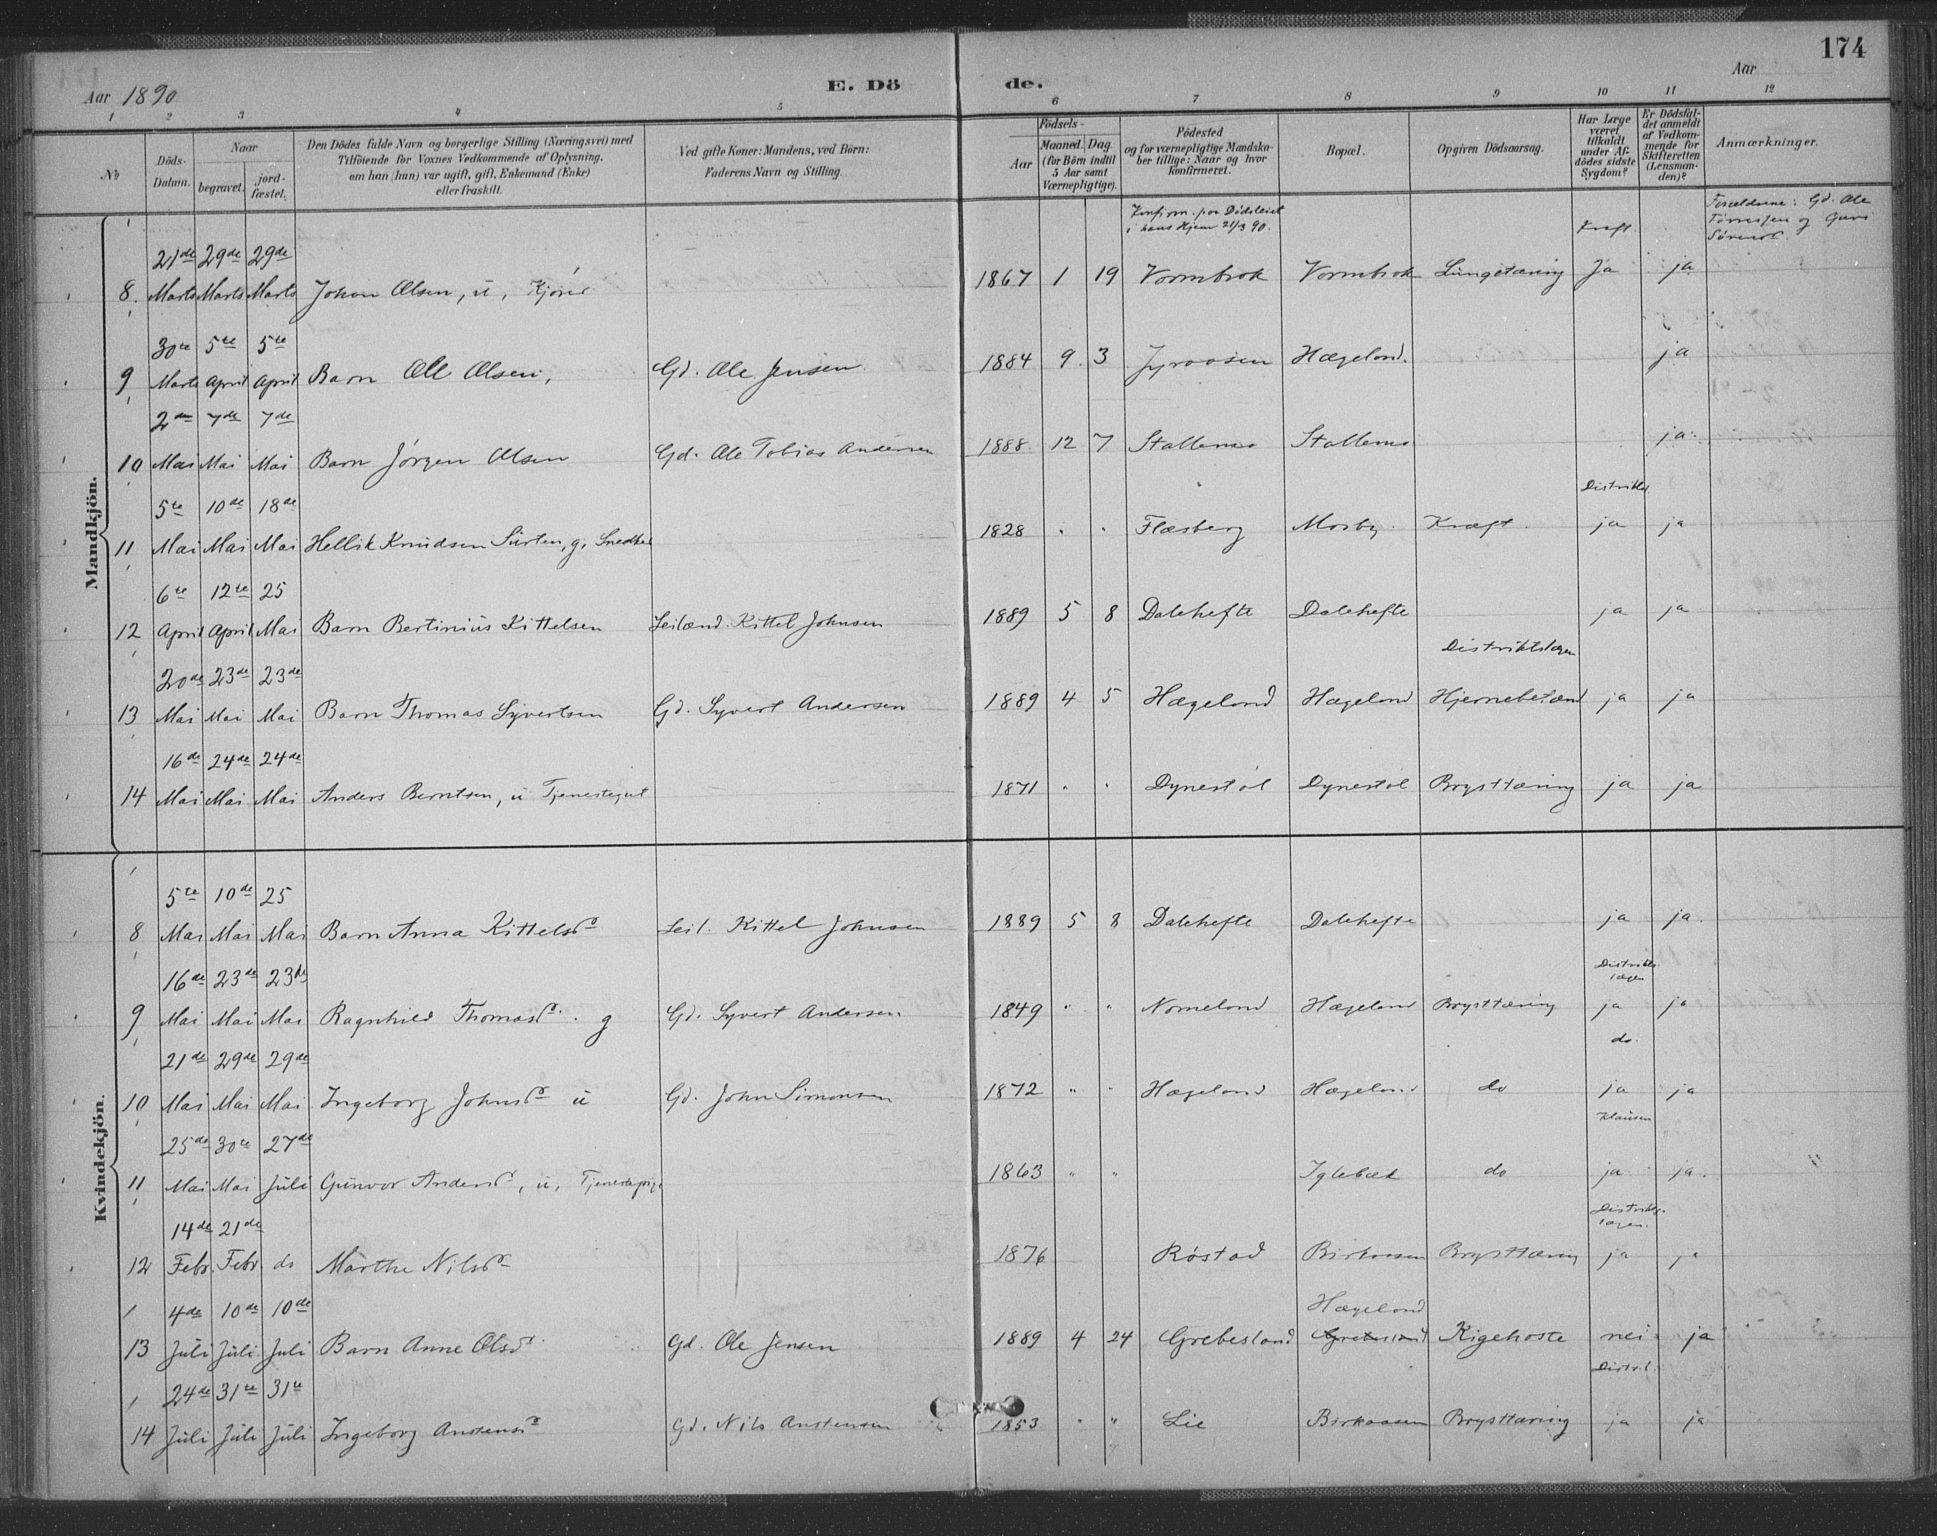 174
Aar 1890
E. Dö de.
Aar
1 2 3 4 5 6 7 8 9 10 11 12
№
Döds-Datum.
Naar
begravet.
jord-fæstet.
Den Dödes fulde Navn og borgerlige Stilling (Næringsvei) med
Tilföiende for Voxnes Vedkommende af Oplysning,
om han (hun) var ugift, gift, Enkemand (Enke)
eller fraskilt.
Ved gifte Koner: Mandens, ved Börn:
Faderens Navn og Stilling.
Födsels-
Aar
Maaned. Dag.
(for Börn indtil
5 Aar samt
Værnepligtige).
Födested
og for værnepligtige Mandska-
ber tillige: Naar og hvor
konfirmeret.
Bopæl.
Opgiven Dödsaarsag.
Har Læge
været
tilkaldt
under Af-
dödes sidste
Sygdom?
Er Dödsfal-
det anmeldt
af Vedkom-
mende for
Skifteretten
(Lensman-
den)?
Anmærkninger.
Mandkjön.
Konfirm. paa Dödsleiet
i hans Hjem 21/3 90.
Forældrene: Gd. Ole
21de 29de 29de
8. Marts Marts Marts Johan Olsen, u, 1867 1 19 Vormbrok Vormbrok Lungetæring Ja ja
30te 5te 5te
9 Marts April April Barn Ole Olsen, Gd. Ole Jensen 1884 9 3 Hægeland. ja
2den 7de 7de
10 Mai Mai Mai Barn Jörgen Olsen Gd. Ole Tobias Andersen 1888 12 7 Stallemo Stallemo ja
5te 10de 18de
11 Mai Mai Mai Hellik Knudsen g, Snedker 1828 " " Flesberg Mosby Kræft. ja ja
6te 12te 25
12 April April Mai Barn Bertinius Kittelsen Leilænd. Kittel Johnsen 1889 5 8 Dalehefte Dalehefte ja ja
Distriktslægen
20de 23de 23de
13 Mai Mai Mai Barn Thomas Syvertsen Gd. Syvert Andersen 1889 4 5 Hægeland Hægeland Hjernebetænd ja ja
16de 24de 24de
14 Mai Mai Mai Anders Berntsen, u Tjenestegut 1871 " " Dynestöl Dynestöl Brysttæring ja ja
Kvindekjön.
5te 10de 25
8 Mai Mai Mai Barn Anna Kittelsd Leil. Kittel Johnsen 1889 5 8 Dalehefte Dalehefte ja ja.
Distrikts-
lægen
16de 23de 23de
9 Mai Mai Mai Ragnhild Thomasd. g Gd. Syvert Andersen 1849 " " Nomeland Hægeland Brysttæring ja ja
do.
21de 29de 29de
10 Mai Mai Mai Ingeborg Johnsd u Gd. John Simonsen 1872 " " Hægeland Hægeland do ja ja
Klausen
25de 30te 27de
11 Mai Mai Juli Gunvor Andersd, u, Tjenestepige 1863 " " Iglebæk do ja ja.
Distrikts-
lægen.
14de 21de
12 Febr. Febr. do Marthe Nilsd 1876 Röstad Birkaasen Brysttæring ja ja
4de 10de 10de Hægeland
13 Juli Juli Juli Barn Anne Olsd Gd. Ole Jensen 1889 4 24 Grebesland Grebesland Kigehoste nei ja
Distr.l.
24de 31te 31te
14 Juli Juli Juli Ingeborg Anstensd Gd. Nils Anstensen 1853 " " Lie Birkaasen Brysttæring ja ja